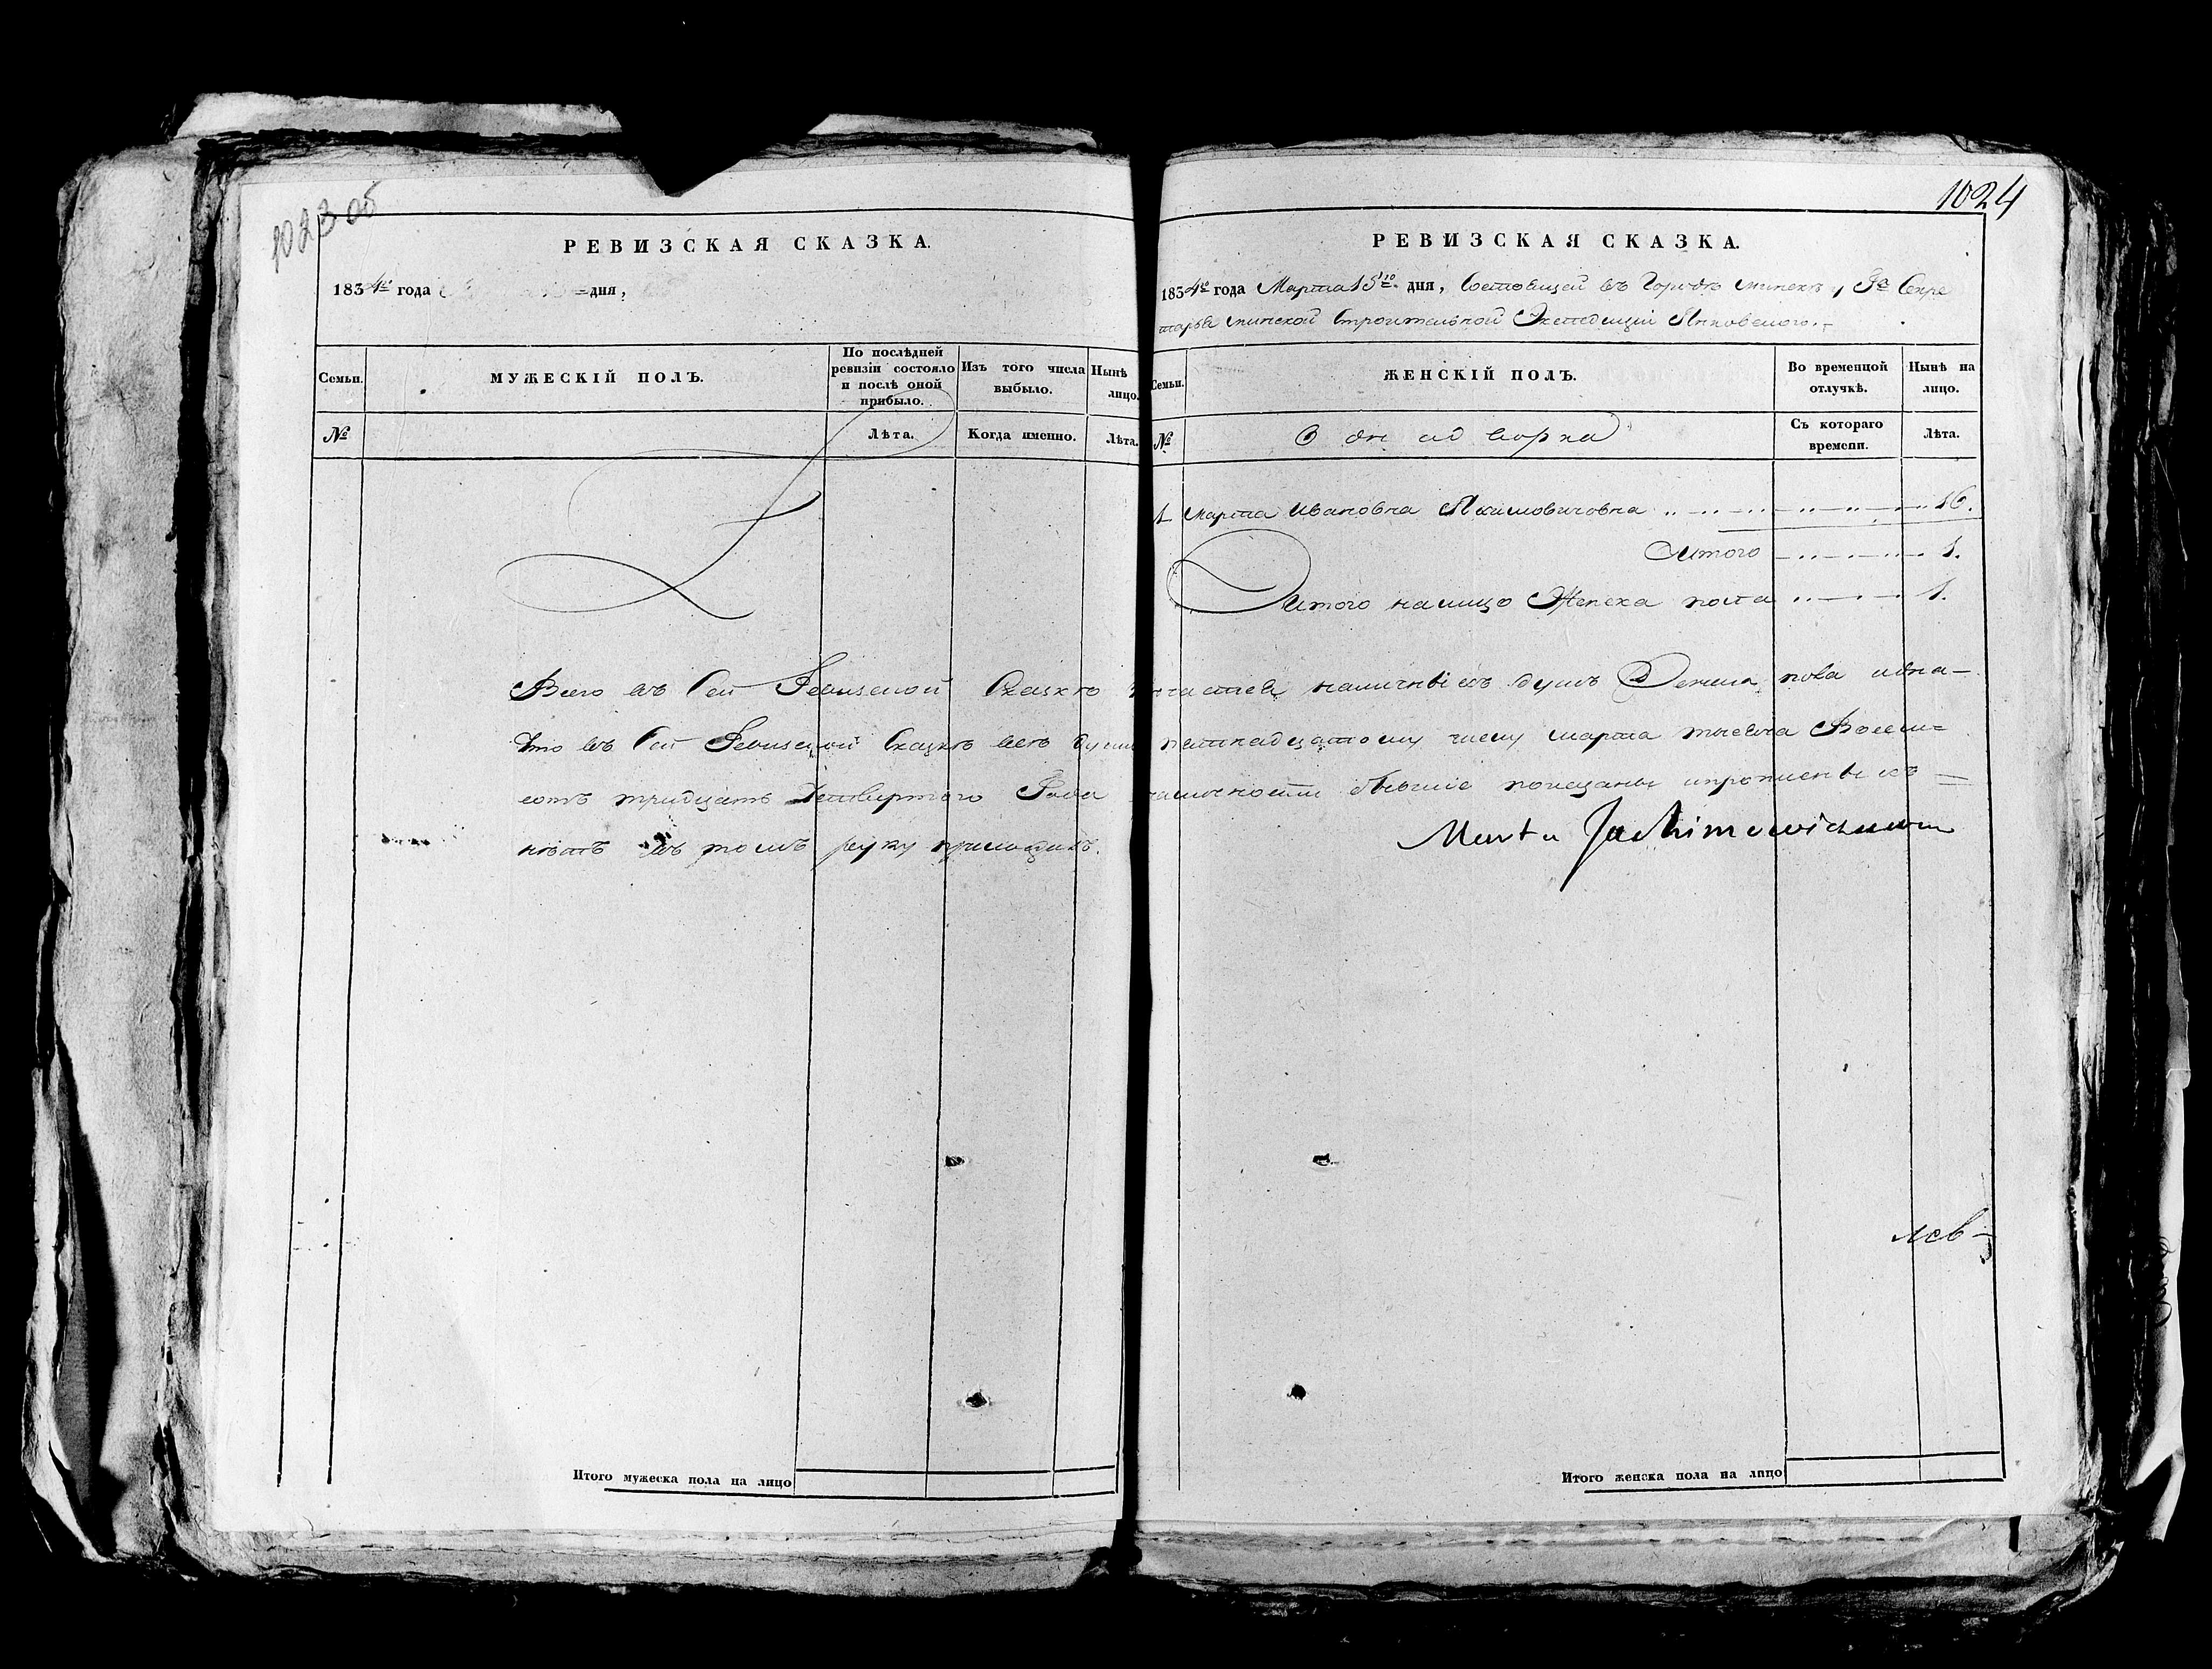 1023 об
РЕВИЗСКАЯ СКАЗКА.
1834го года дня,
Семьи. МУЖЕСКІЙ ПОЛЪ. По послѣдней ревизіи состояло и послѣ оной прибыло. Изъ того числа выбыло. Нынѣ лицо.
№ Лѣта. Когда именно. Лѣта.
Итого мужеска пола на лицо
1024
РЕВИЗСКАЯ СКАЗКА.
1834го года Марта 15го дня, Состоящей въ Городѣ Минскѣ у Гна Секре
таря минской Строительной Экспедиціи Янковского.
Семьи. ЖЕНСКІЙ ПОЛЪ. Во временной отлучкѣ. Нынѣ на лицо.
№ Однодворка Съ котораго времени. Лѣта.
1 Марта Ивановна Якимовичовна 16.
Итого 1.
Итого налицо Женска пола 1.
Всего въ сей Ревизской Сказкѣ наличныхъ душъ Женска пола одна
Что въ сей Ревизской Сказкѣ всѣ души пятнадцатому числу марта тысяча Восем=
сотъ тридцать Четвертого Года наличности бывшіе показаны и прописныхъ =
нѣтъ въ томъ руку приложилъ.
Marta Jachimowiczuwna
Итого женска пола на лицо